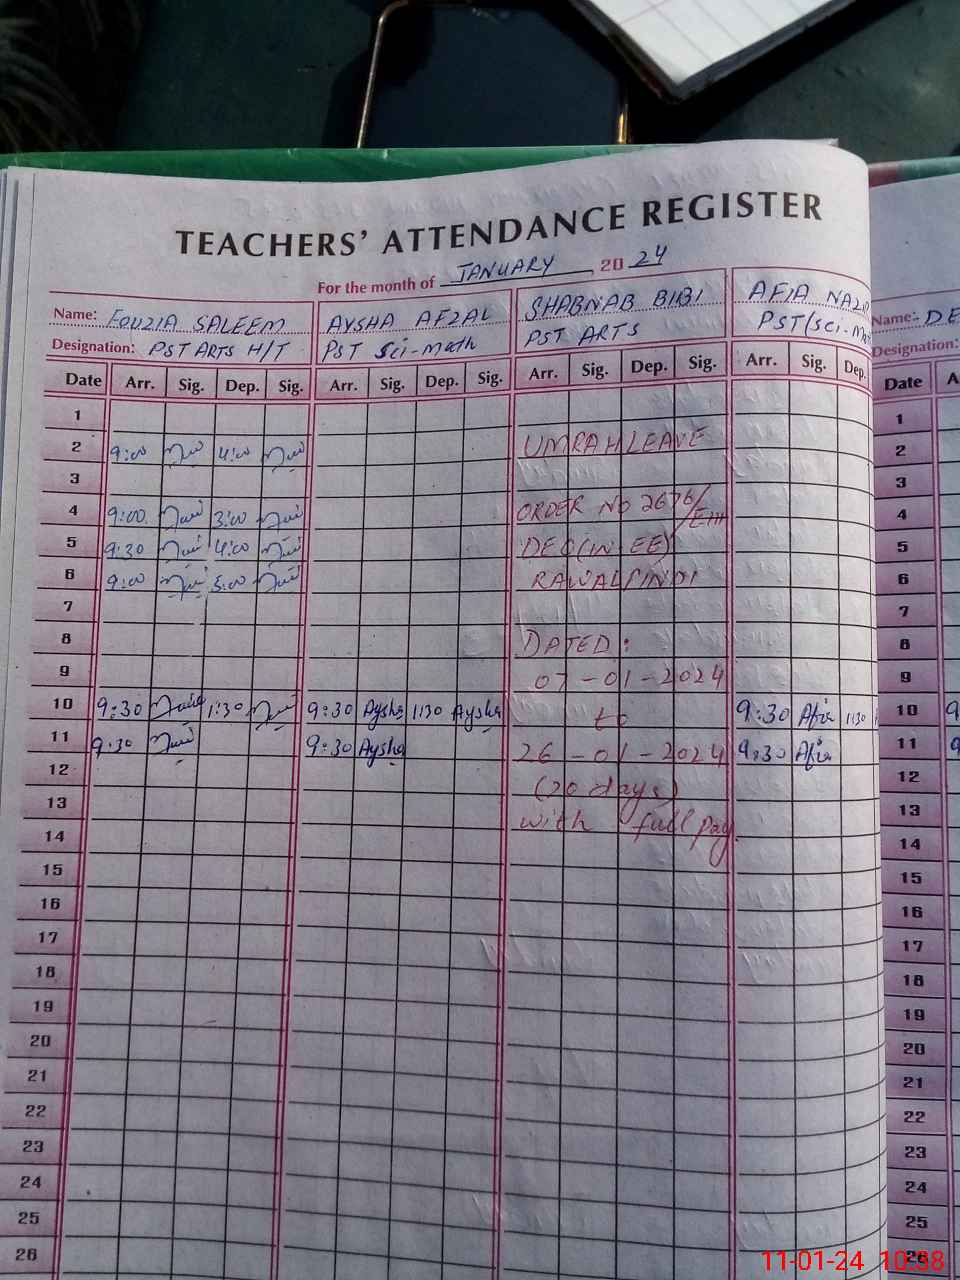 TEACHERS' ATTENDANCE REGISTER
For the month of JANUARY 2024
Name: FOUZIA SALEEM AYSHA AFZAL SHABNAB BIBI AFIA Name:- DE
Designation: PST ARTS H/T PST Sci-Math PST ARTS PST (Sci-M Designation:
Date Arr. Sig. Dep. Sig. Arr. Sig. Dep. Sig. Arr. Sig. Dep. Sig. Arr. Sig. Dep. Date A
1 1
2 9:00 4:00 UMRAH LEAVE 2
3 3
4 9:00 3:00 ORDER NO 2676/ 4
5 9:30 4:00 DEO (IN EE) 5
6 9:00 3:00 RAWALPINDI 6
7 7
8 DATED: 8
9 07-01-2024 9
10 9:30 1:30 9:30 Aysha 1:30 Aysha to 9:30 Afia 1:30 10 9
11 9:30 9:30 Aysha 26-01-2024 9:30 Afia 11 9
12 (20 days) 12
13 with full pay 13
14 14
15 15
16 16
17 17
18 18
19 19
20 20
21 21
22 22
23 23
24 24
25 25
26 26
11-01-24 10:38